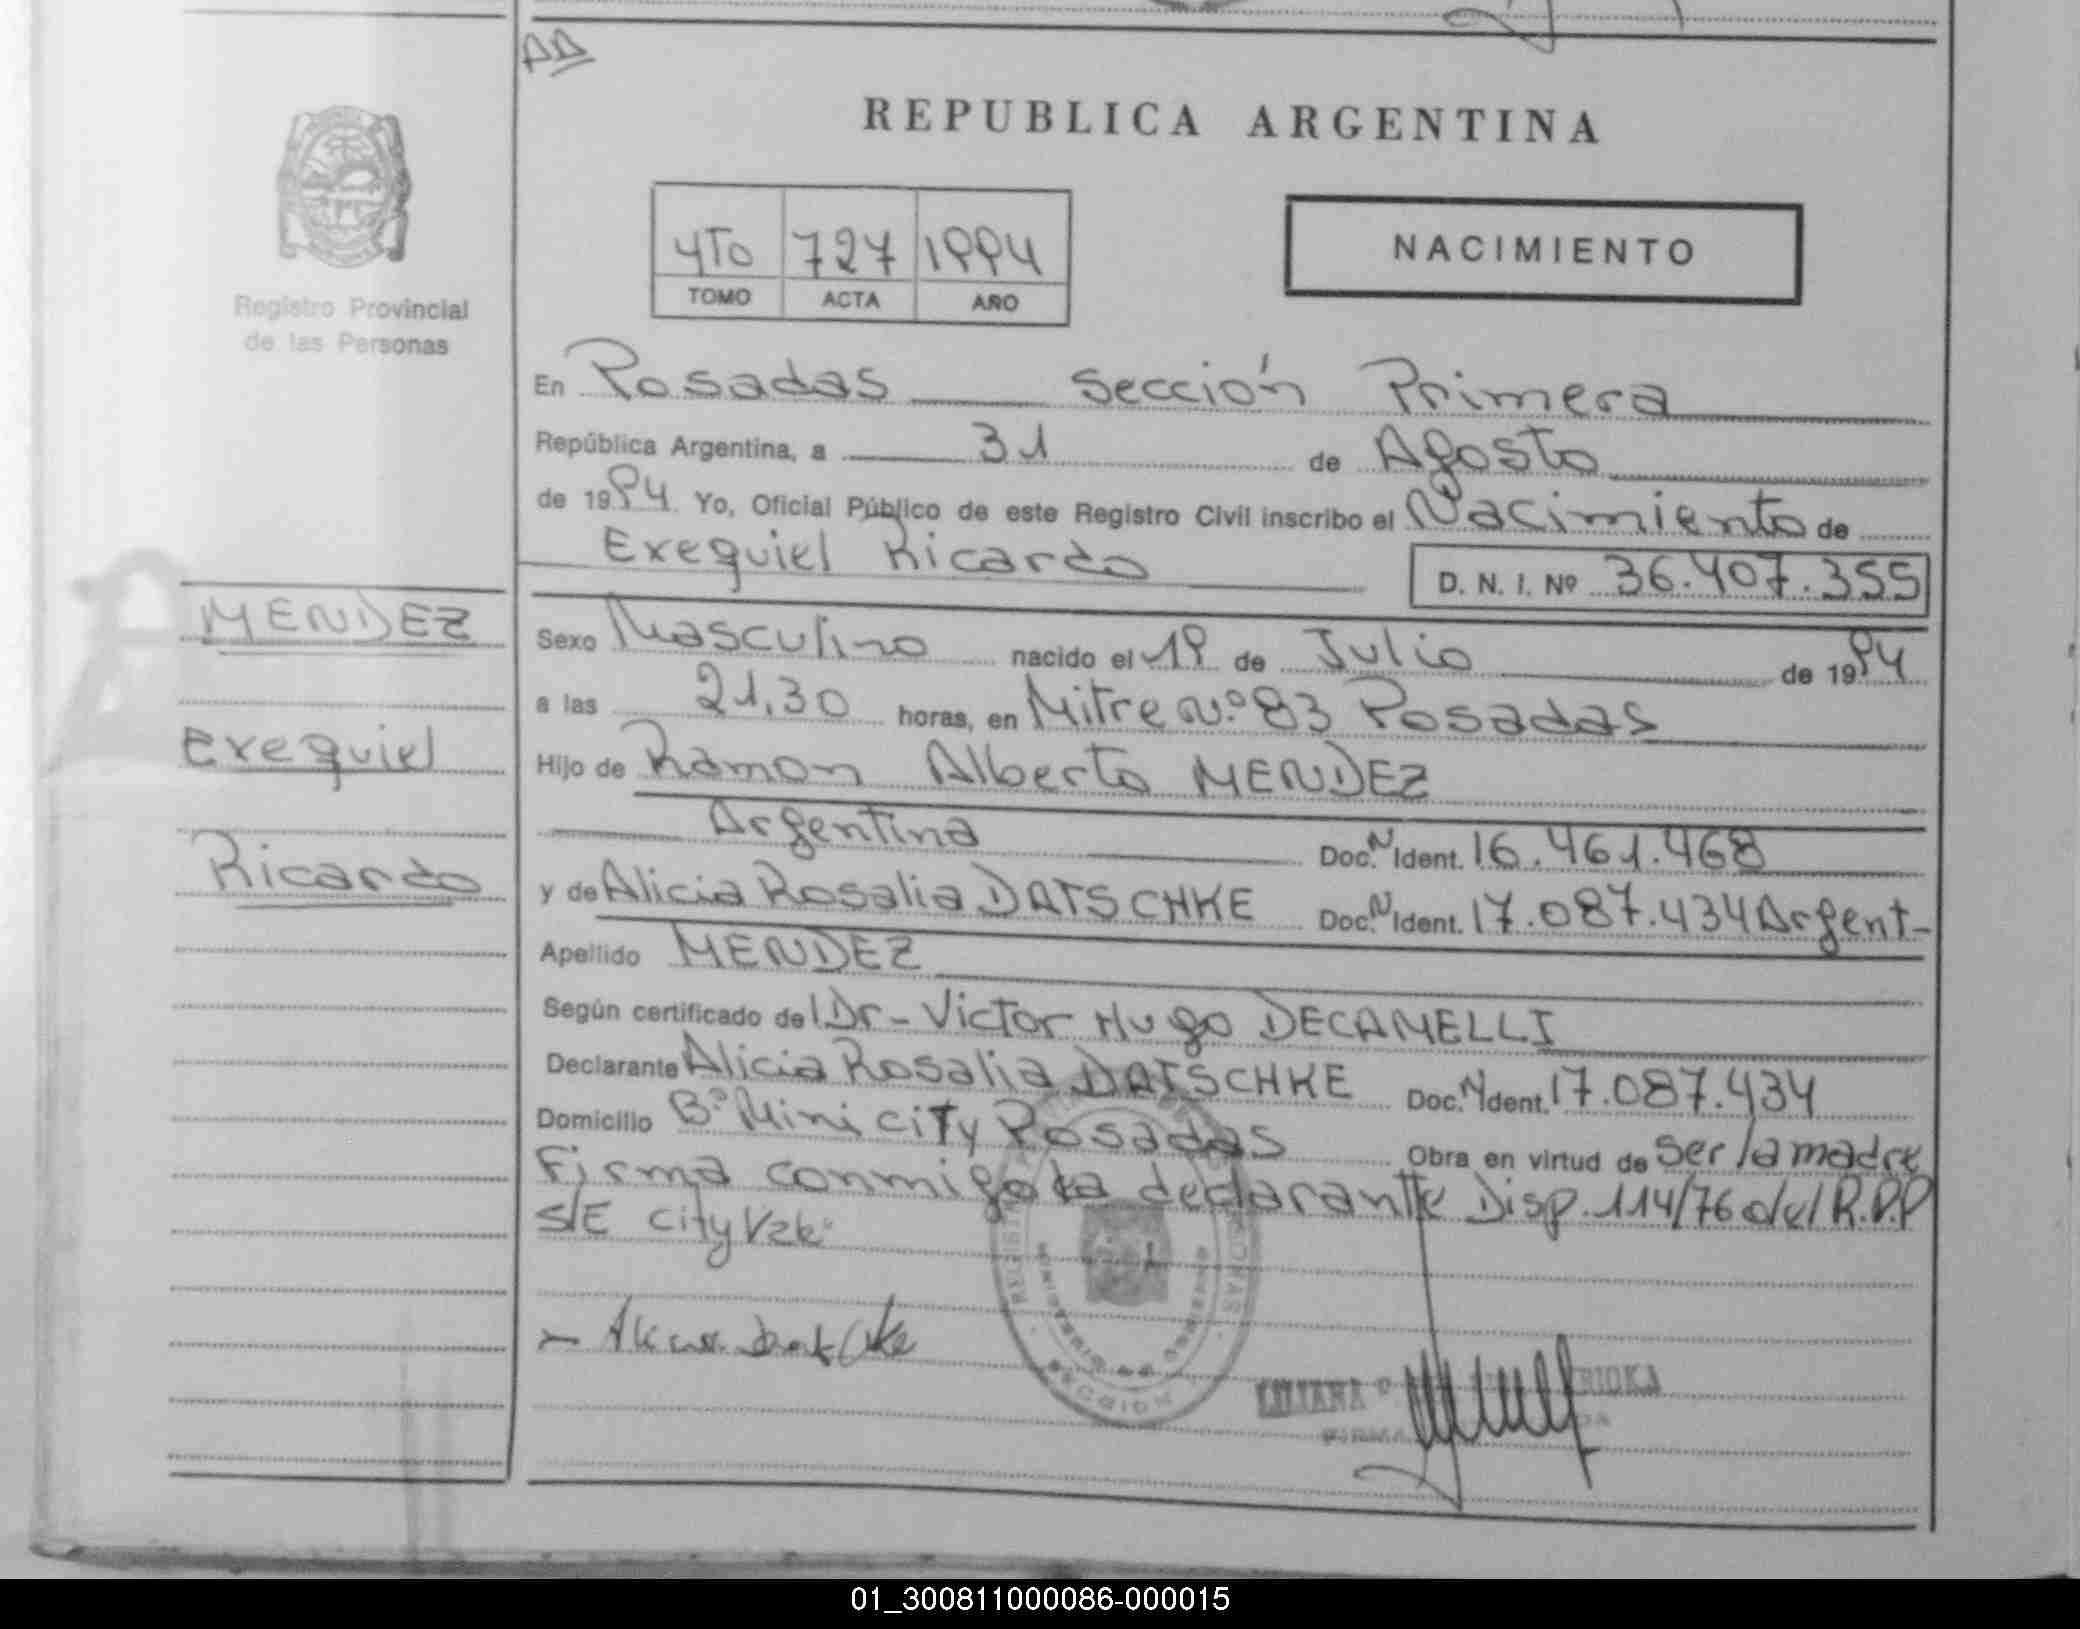 AD
REPUBLICA ARGENTINA
4TO 727 1994
TOMO ACTA AÑO
NACIMIENTO
Registro Provincial
de las Personas
En Posadas sección Primera
República Argentina, a 31 de Agosto
de 1994 Yo, Oficial Público de este Registro Civil inscribo el Nacimiento de
Exequiel Ricardo D. N. I. Nº 36.407.355
MENDEZ
Exequiel
Ricardo
Sexo Masculino nacido el 19 de Julio de 1994
a las 21,30 horas, en Mitre Nº 83 Posadas
Hijo de Ramon Alberto MENDEZ
Argentina Doc. N Ident. 16.461.468
y de Alicia Rosalia DATSCHKE Doc. N Ident. 17.087.434 Argent-
Apellido MENDEZ
Según certificado del Dr- Victor Hugo DECAMELLI
Declarante Alicia Rosalia DATSCHKE Doc. N Ident. 17.087.434
Domicilio Bº Mini city Posadas Obra en virtud de ser la madre
Firma conmigo la declarante Disp. 114/76 del R.P.P
S/E city Vale
LILIANA
FIRMA
01_300811000086-000015